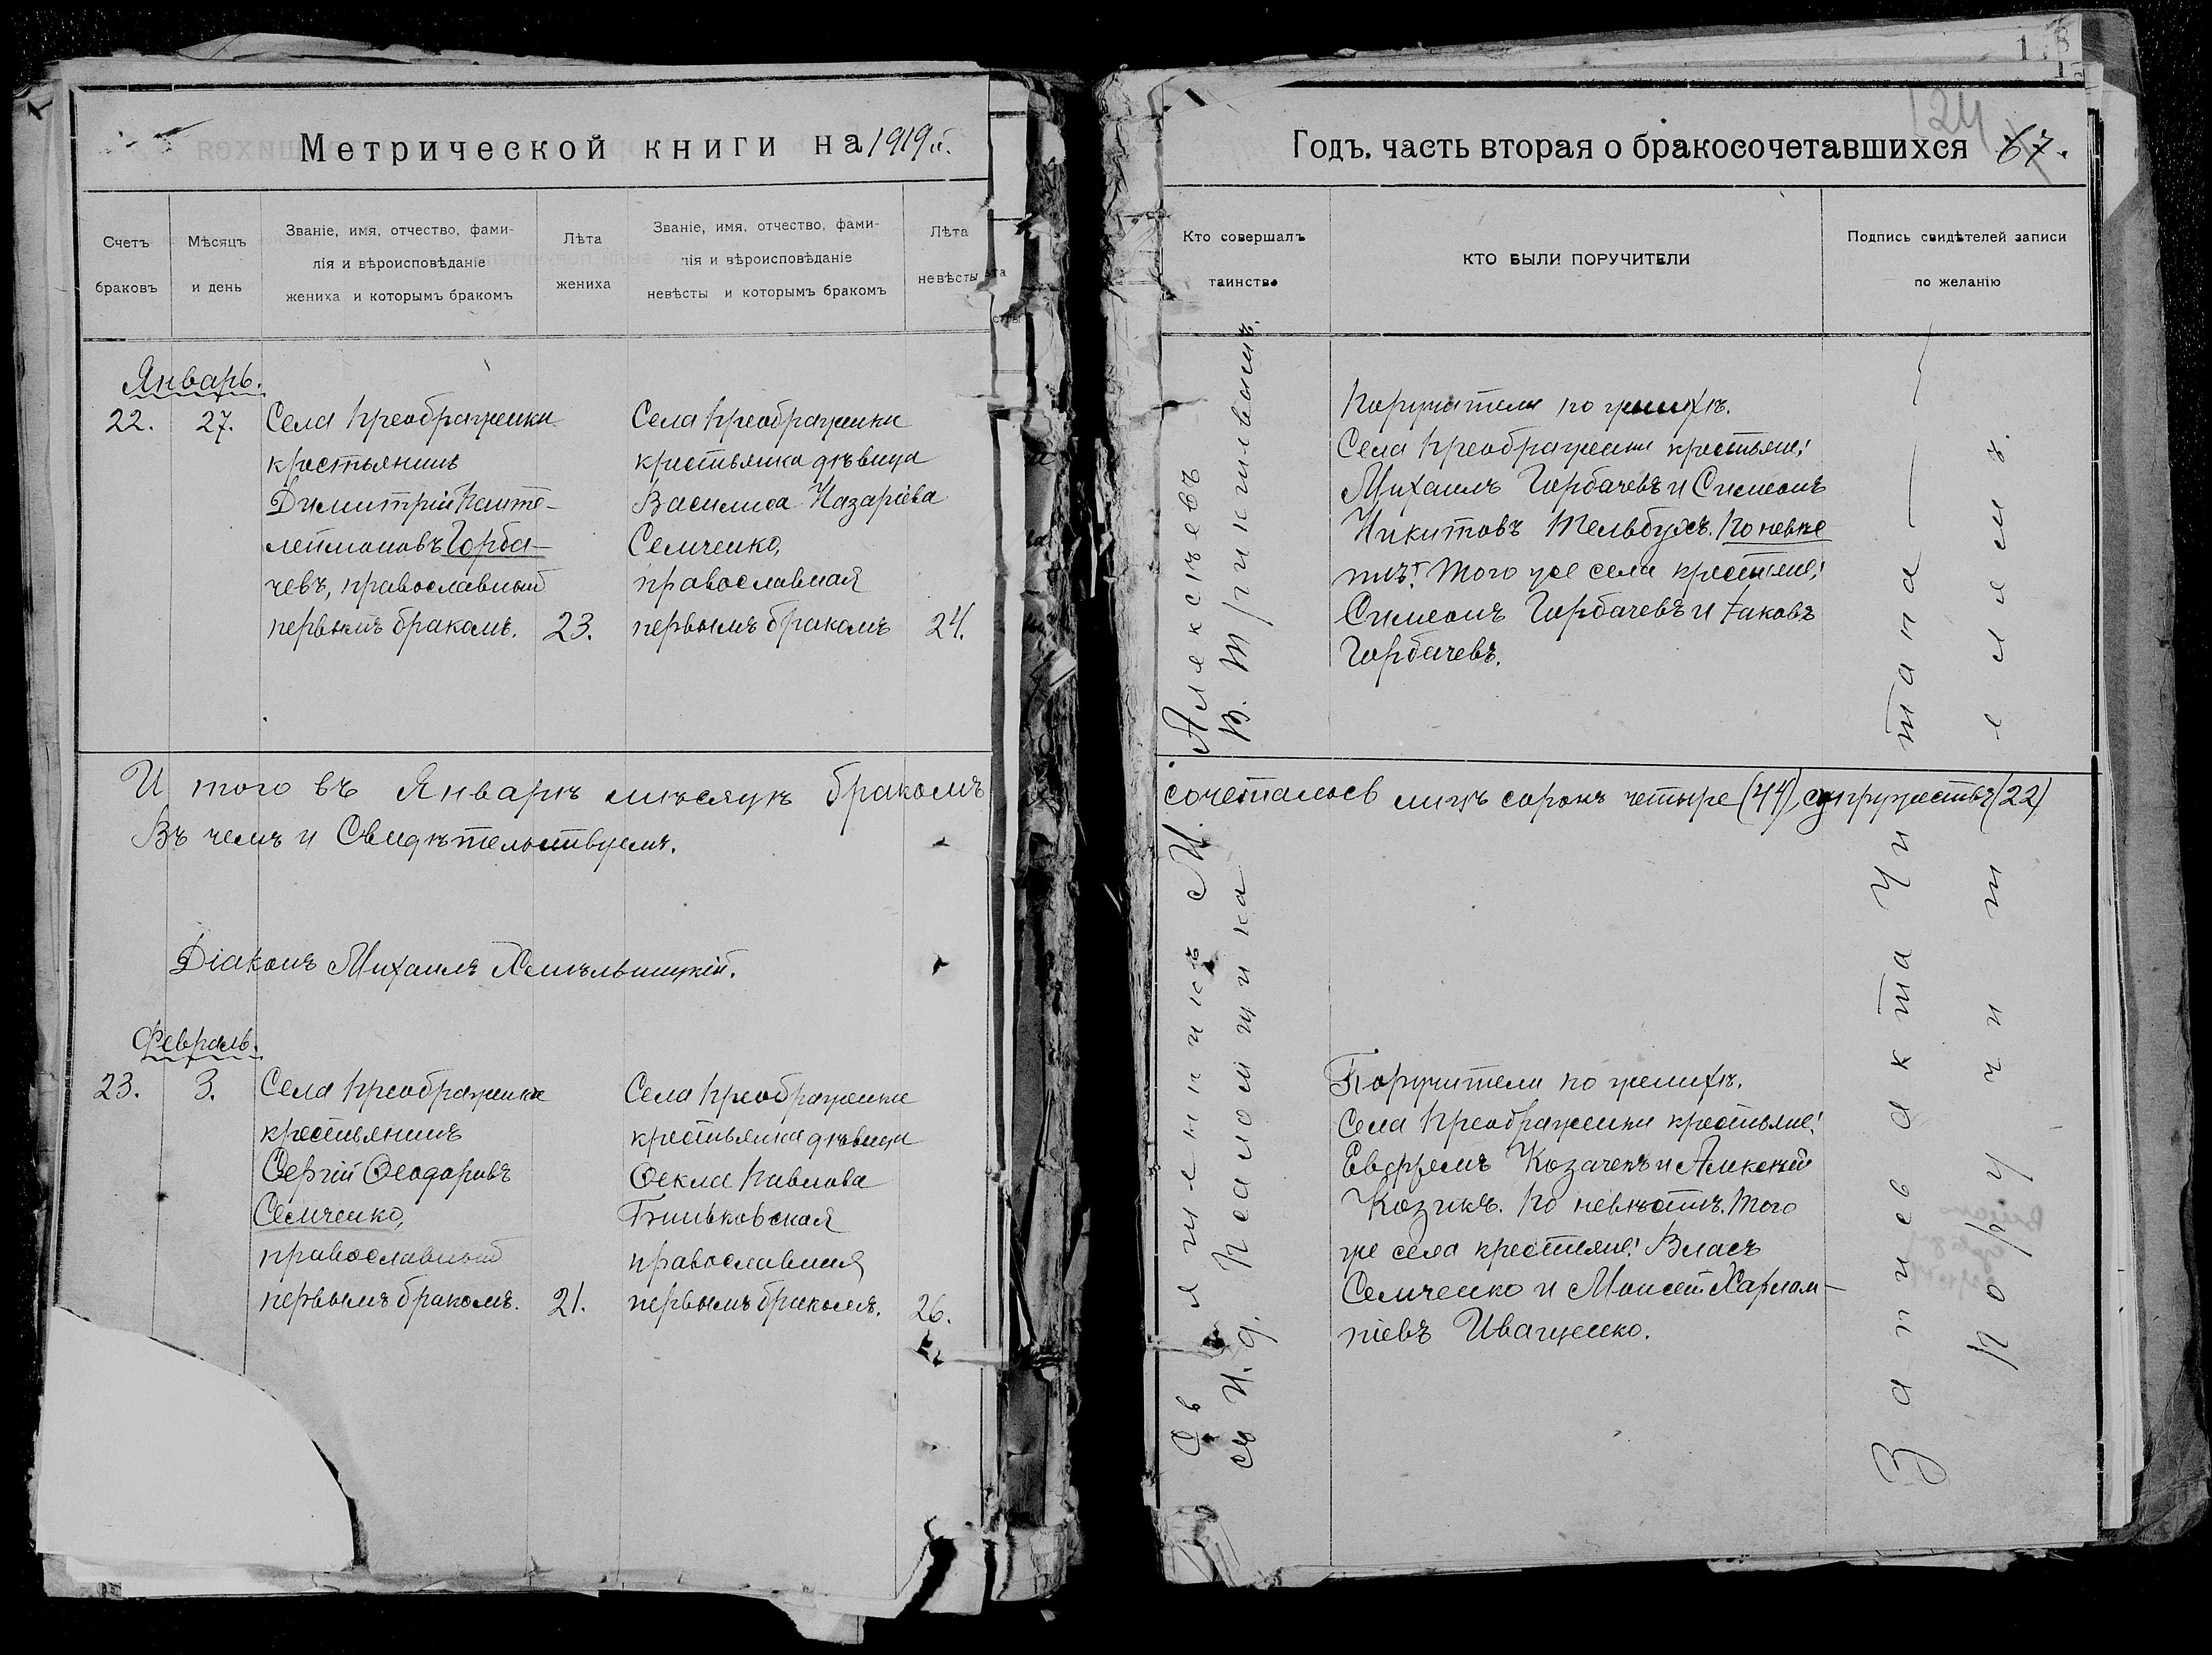 Метрической книги на 1919й.
Счетъ браковъ
Мѣсяцъ и день
Званіе, имя, отчество, фами-
лія и вѣроисповѣданіе
жениха и которымъ бракомъ
Лѣта жениха
Званіе, имя, отчество, фами-
лія и вѣроисповѣданіе
невѣсты и которымъ бракомъ
Лѣта невѣсты
Январь.
22. 27.
Села Преображенки
крестьянинъ
Димитрій Панте-
леимоновъ Горба-
чевъ, православный
первымъ бракомъ. 23.
Села Преображенки
крестьянка дѣвица
Василиса Назаріева
Семченко,
православная
первымъ бракомъ 24.
И того въ Январѣ мѣсяцѣ бракомъ
Въ чемъ и Свидѣтельствуемъ.
Діаконъ Михаилъ Хмѣльницкій.
Февраль.
23. 3.
Села Преображенки
крестьянинъ
Сергій Ѳеодоровъ
Семченко,
православный
первымъ бракомъ. 21.
Села Преображенки
крестьянка дѣвица
Ѳекла Павлова
православная
первымъ бракомъ. 26.
Годъ, часть вторая о бракосочетавшихся 67.
124
Кто совершалъ таинство
КТО БЫЛИ ПОРУЧИТЕЛИ
Подпись свидѣтелей записи
по желанію
Поручители по женихѣ.
Села Преображенки крестьяне:
Михаилъ Горбачевъ и Симеонъ
Никитовъ Тельбухъ. По невѣс
тѣ: Того же села крестьяне:
Симеонъ Горбачевъ и Іаковъ
Горбачевъ.
сочеталось лицъ сорокъ четыре (44) супружествъ (22)
Поручители по женихѣ.
Села Преображенки крестьяне:
Козаченъ и Алексѣй
Козикъ. По невѣстѣ: Того
же села крестьяне: Власъ
Семченко и Моисей Харлам-
піевъ Иващенко.
Священникъ М. Алексѣевъ
съ И. д. Псаломщика В. Терпиловымъ.